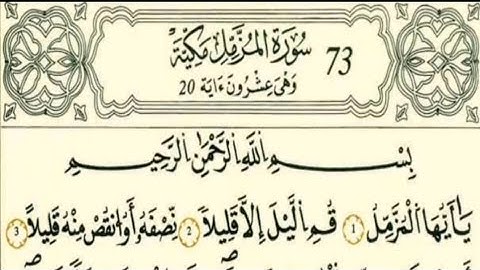 سُورَةُ الْمُزَّمِّلِ مَكِّيَّةٌ 73
وَهِيَ عِشْرُونَ ءَايَة 20
بِسْمِ اللَّهِ الرَّحْمَٰنِ الرَّحِيمِ
يَـٰأَيُّهَا الْمُزَّمِّلُ 1 قُمِ اللَّيْلَ إِلَّا قَلِيلاً 2 نِّصْفَهُ أَوُ انقُصْ مِنْهُ قَلِيلاً 3